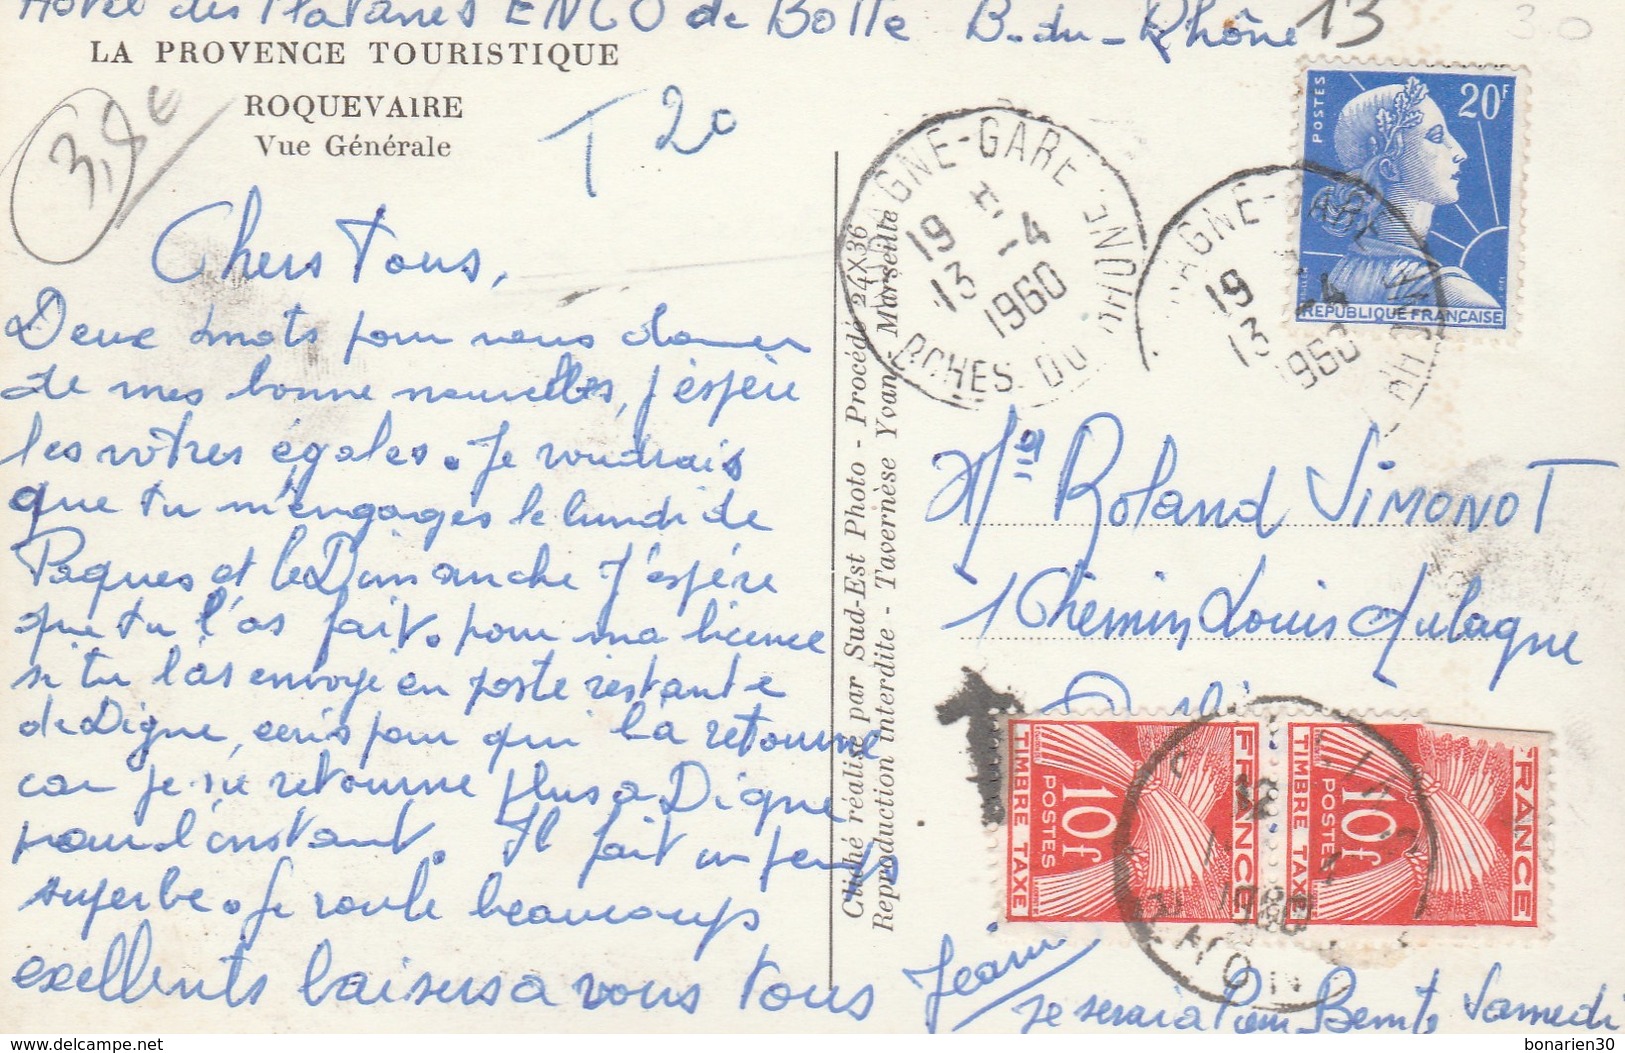 Hôtel des Platanes ENCO de Botte B.-du-Rhône 13
LA PROVENCE TOURISTIQUE
ROQUEVAIRE
Vue Générale
3,8€
T 20
30
Chers Tous,
Deux mots pour vous donner
de mes bonne nouvelles, j'espère
les vôtres égales. Je voudrais
que tu m'engages le lundi de
Paques et le Dimanche J'espère
que tu l'as fait. pour ma licence
si tu l'as envoyé en poste restante
de Digne, ecris pour qui la retourne
car je ne retourne plus a Digne
pour l'instant. Il fait un temps
superbe. Je roule beaucoup
exellents baisers a vous tous
je serai a Samedi
Cliché réalisé par Sud-Est Photo - Procédé 24X36
Reproduction interdite - Tavernèse Yvan, Marseille
AGNE-GARE
19 H
13 -4
1960
BCHES DU RHONE
AGNE-GARE
19
13 -4
1960
RHONE
POSTES
20F
REPUBLIQUE FRANÇAISE
Mr Roland SIMONOT
1 Chemin Louis Aulagne
T
FRANCE
10f
POSTES
TIMBRE TAXE
FRANCE
10f
POSTES
TIMBRE TAXE
1960
delcampe.net
bonarien30